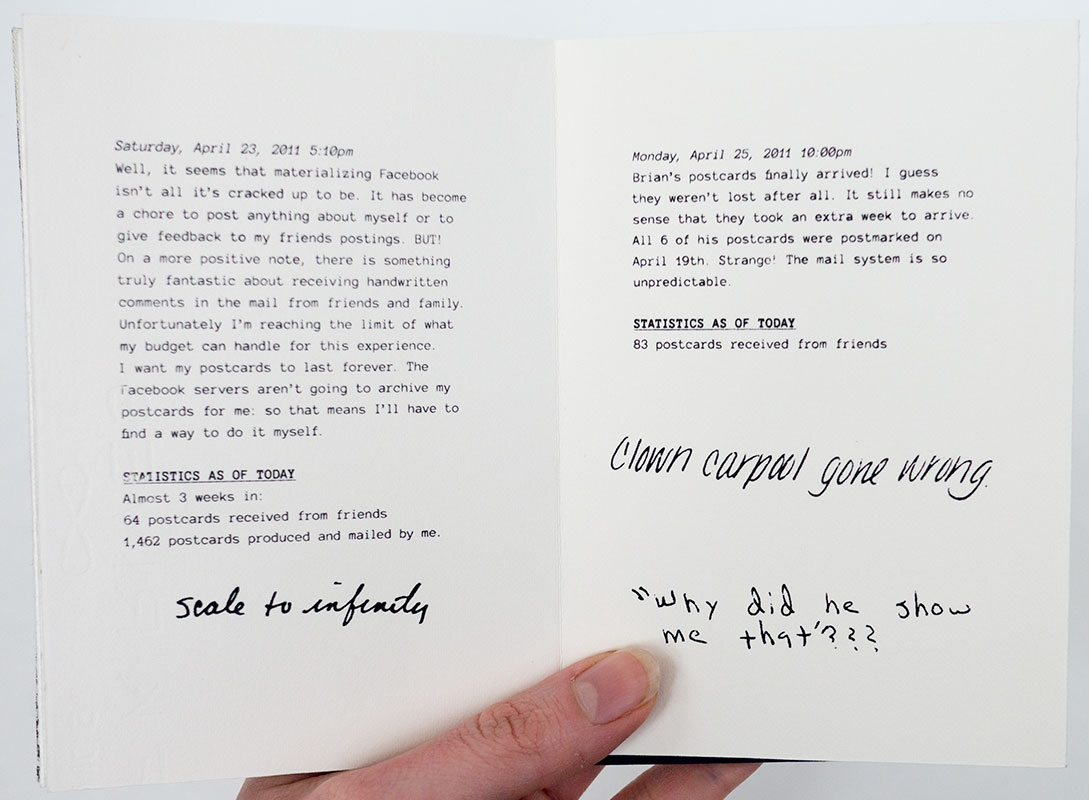 Saturday, April 23, 2011 5:10pm
Well, it seems that materializing Facebook
isn't all it's cracked up to be. It has become
a chore to post anything about myself or to
give feedback to my friends postings. BUT!
On a more positive note, there is something
truly fantastic about receiving handwritten
comments in the mail from friends and family.
Unfortunately I'm reaching the limit of what
my budget can handle for this experience.
I want my postcards to last forever. The
Facebook servers aren't going to archive my
postcards for me: so that means I'll have to
find a way to do it myself.
STATISTICS AS OF TODAY
Almost 3 weeks in:
64 postcards received from friends
1,462 postcards produced and mailed by me.
scale to infinity
Monday, April 25, 2011 10:00pm
Brian's postcards finally arrived! I guess
they weren't lost after all. It still makes no
sense that they took an extra week to arrive.
All 6 of his postcards were postmarked on
April 19th. Strange! The mail system is so
unpredictable.
STATISTICS AS OF TODAY
83 postcards received from friends
Clown carpool gone wrong.
"Why did he show
me that'???